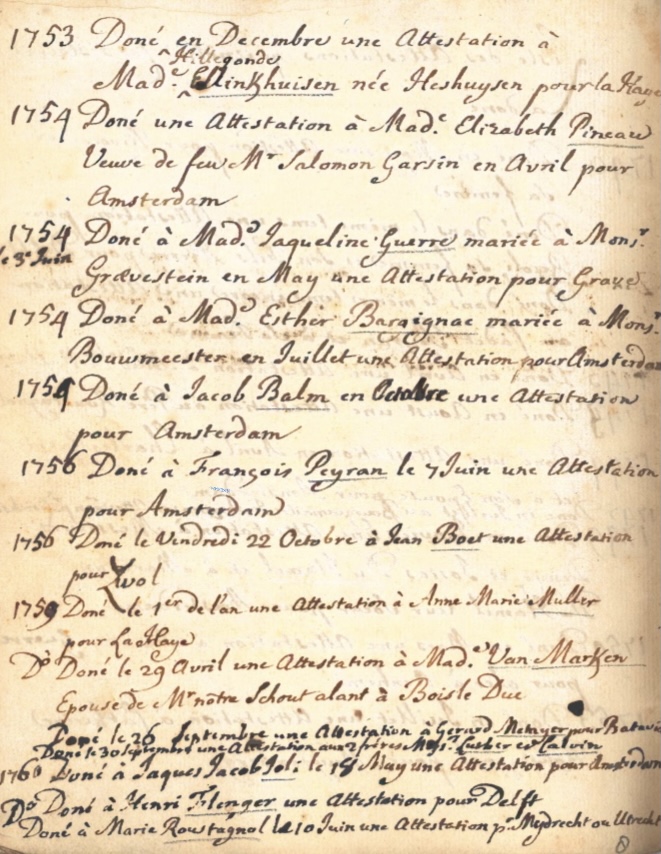 1753 Doné en Decembre une Attestation à
Hillegonde
Mad.e Elinkhuisen née Heshuysen pour la Haye
1754 Doné une Attestation à Mad.e Elizabeth Pineau
Veuve de feu Mr Salomon Garsin en Avril pour
Amsterdam
1754 Doné à Mad.e Jaqueline Guerre mariée à Monsr
le 3e Juin
Grævestein en May une Attestation pour Grave
1754 Doné à Mad.e Esther Bargignac mariée à Monsr
Bouwmeester en Juillet une Attestation pour Amsterdam
1754 Doné à Jacob Balm en Octobre une Attestation
pour Amsterdam
1756 Doné à François Peyran le 7 Juin une Attestation
pour Amsterdam
1756 Doné le Vendredi 22 Octobre à Jean Boet une Attestation
pour Zwol
1759 Doné le 1er de l'an une Attestation à Anne Marie Muller
pour La Haye
Do Doné le 29 Avril une Attestation à Mad.e Van Marken
Epouse de Mr nôtre Schout alant à Bois le Duc
Doné le 26 Septembre une Attestation à Gerard Metayer pour Batavia
Doné le 30 Septembre une Attestation aux 2 frères Mrs. Luther et Calvin
1760 Doné à Jaques Jacob Joli le 18 May une Attestation pour Amsterdam
Do Doné à Henri Flenger une Attestation pour Delft
Doné à Marie Roustagnol le 10 Juin une Attestation pr Mydrecht ou Utrecht
8